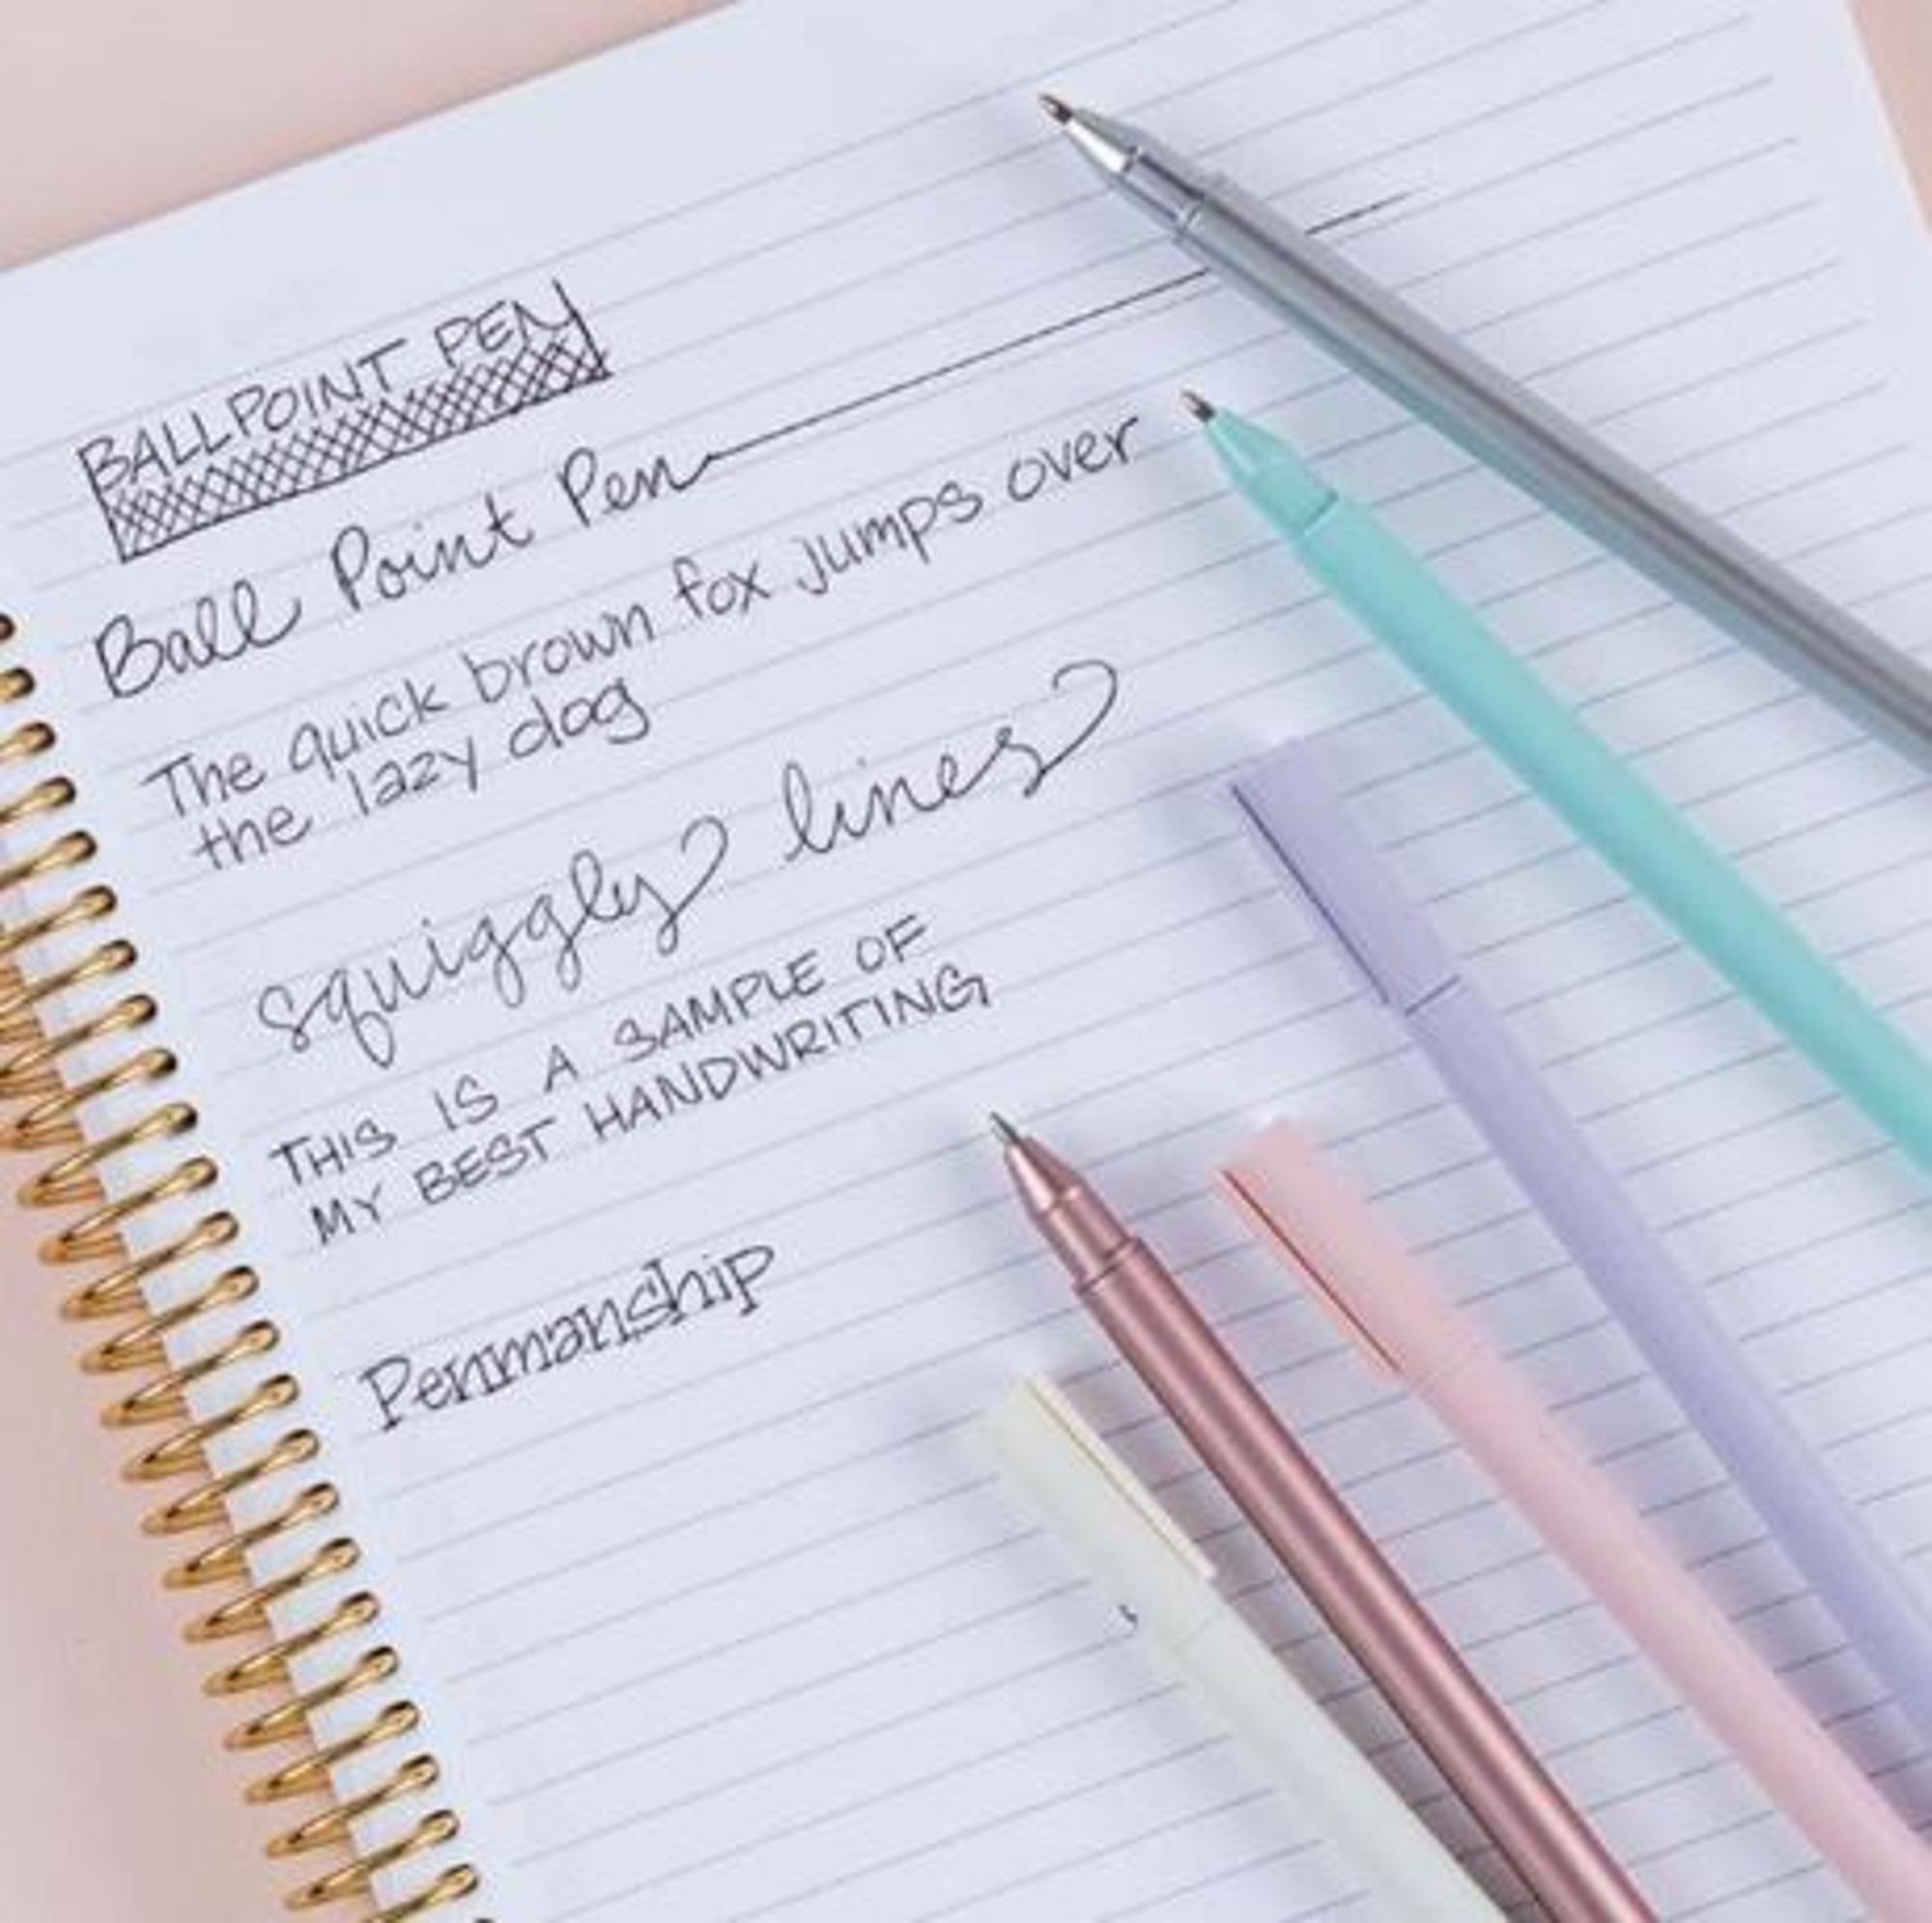 BALLPOINT PEN
Ball Point Pen
The quick brown fox jumps over
the lazy dog
squiggly lines
THIS IS A SAMPLE OF
MY BEST HANDWRITING
Penmanship